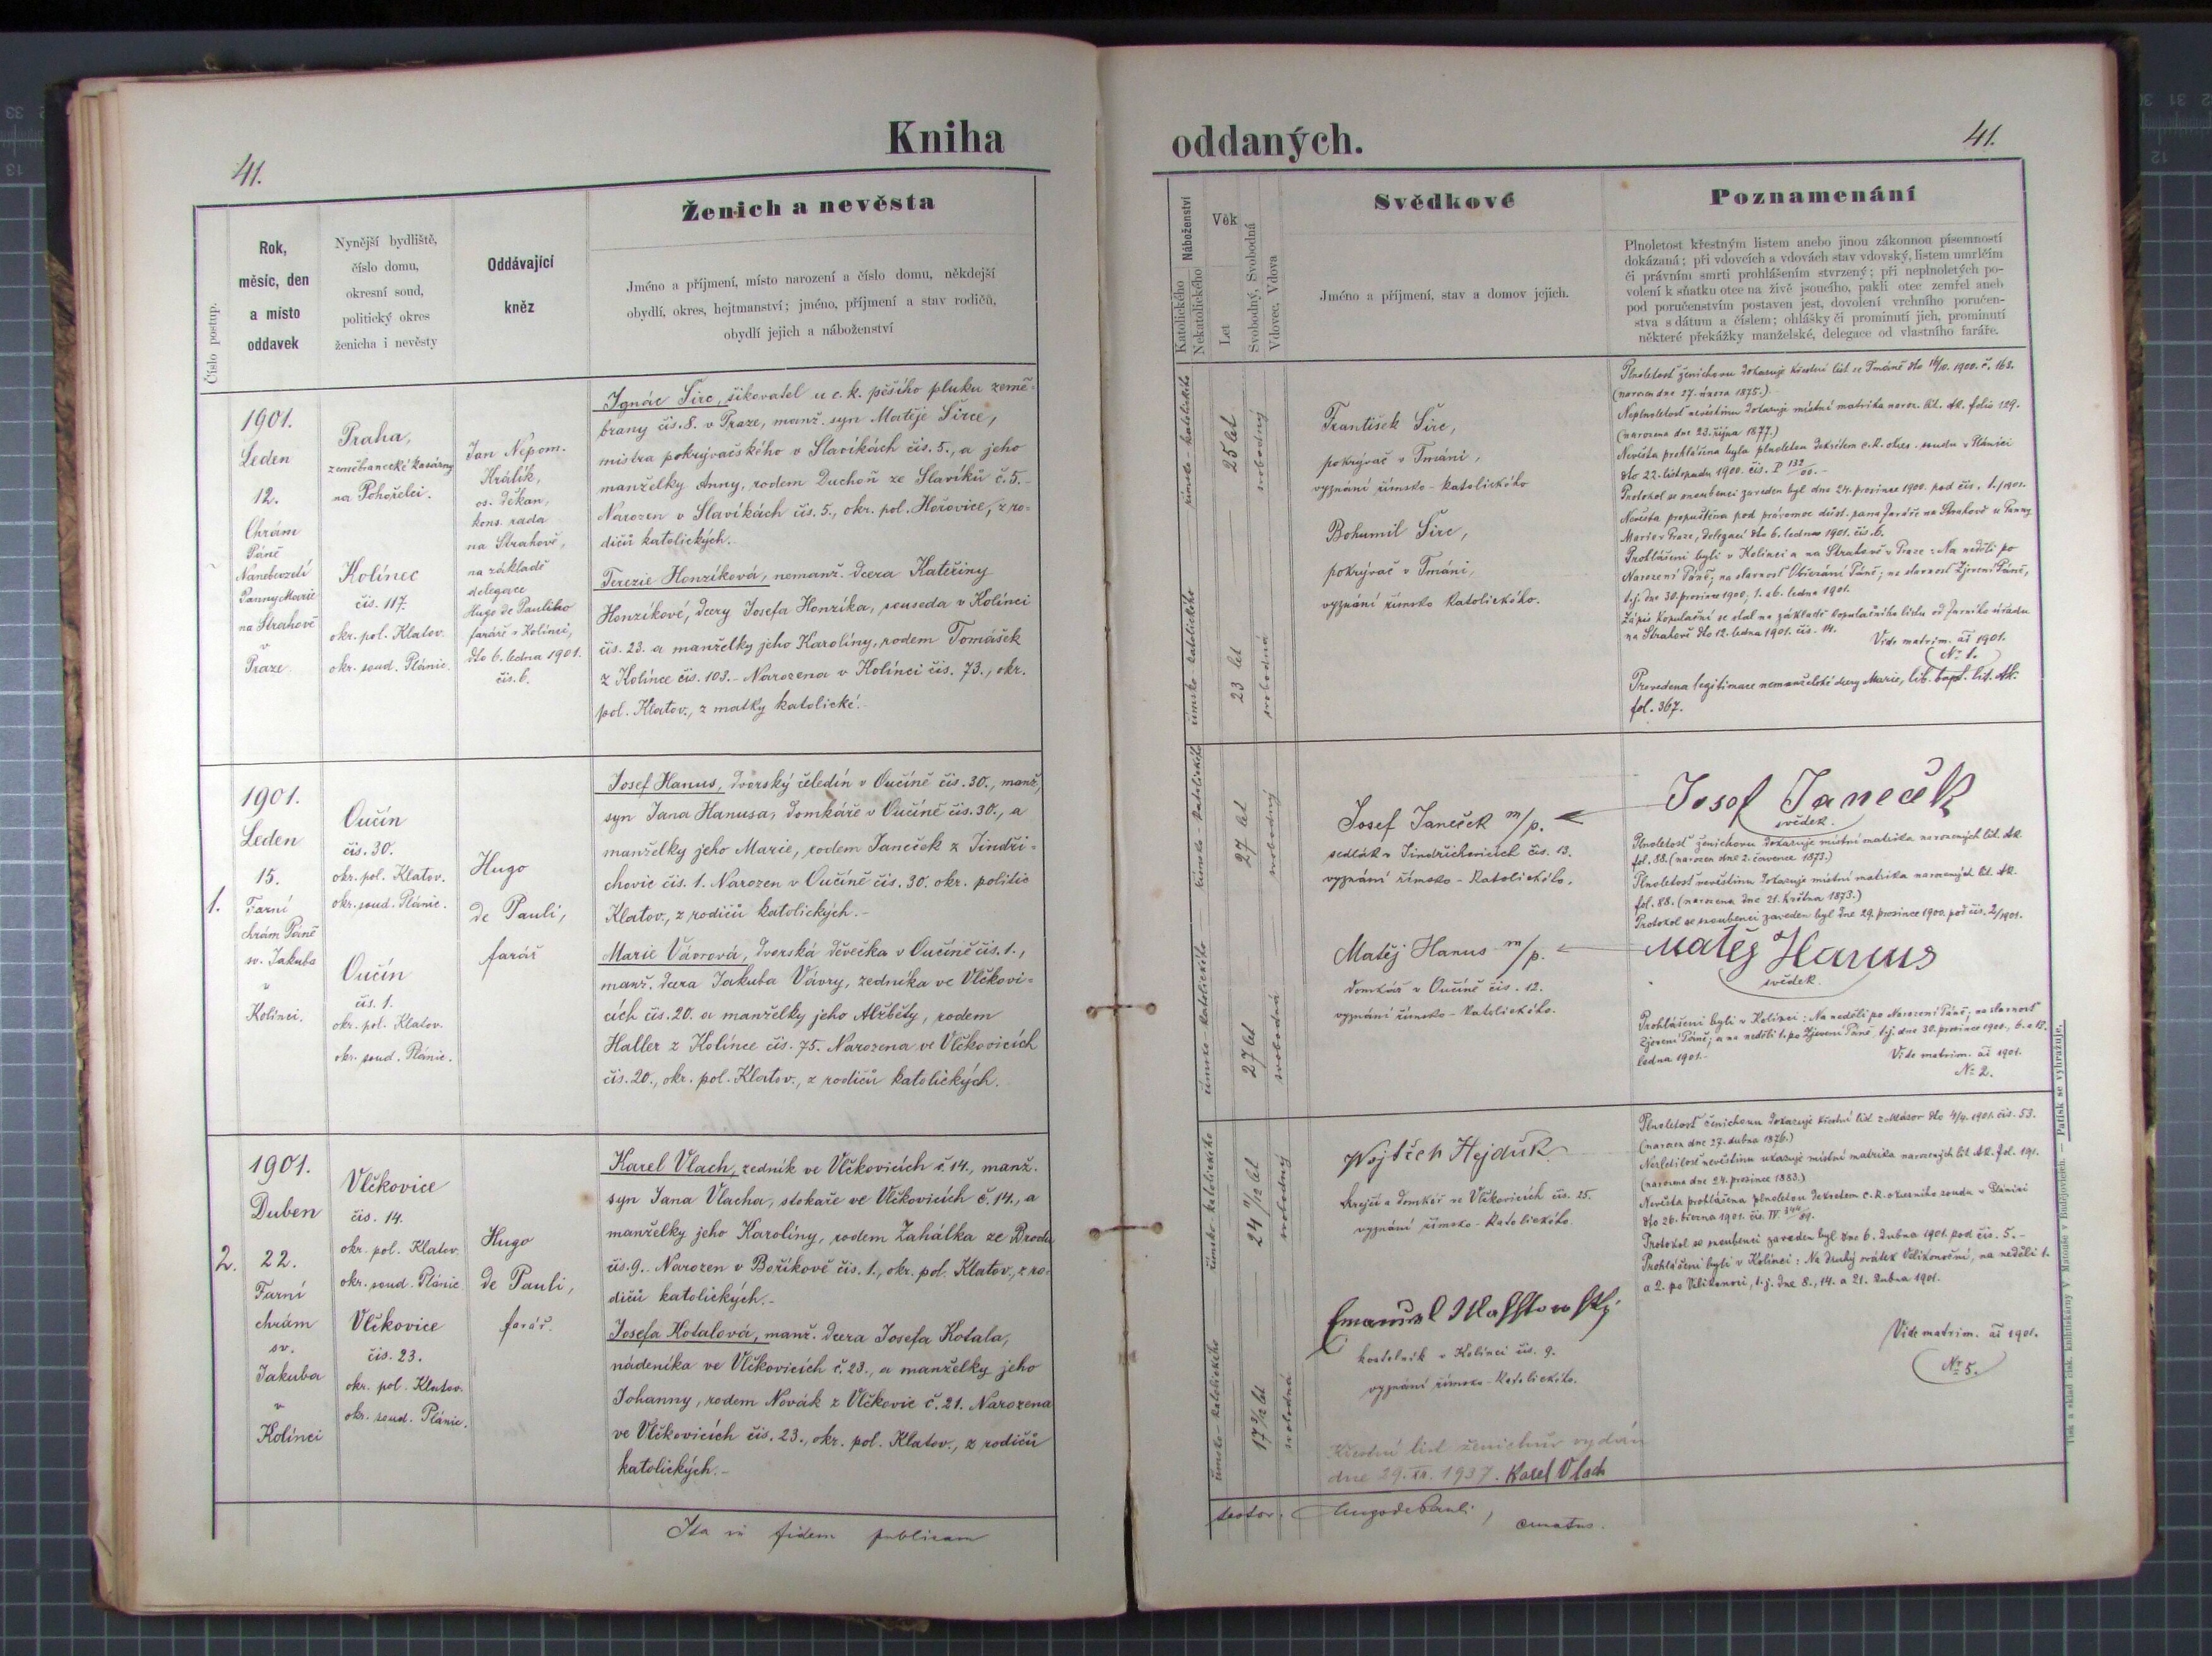 Kniha
oddaných.
41.
41.
Číslo postup.
Rok,
měsíc, den
a místo
oddavek
Nynější bydliště,
číslo domu,
okresní soud,
politický okres
ženicha i nevěsty
Oddávající
kněz
Ženich a nevěsta
Jméno a příjmení, místo narození a číslo domu, někdejší
obydlí, okres, hejtmanství; jméno, příjmení a stav rodičů,
obydlí jejich a náboženství
Náboženství
Katolického
Nekatolického
Věk
Let
Svobodný, Svobodná
Vdovec, Vdova
Svědkové
Jméno a příjmení, stav a domov jejich.
Poznamenání
Plnoletost křestným listem anebo jinou zákonnou písemností
dokázaná; při vdovcích a vdovách stav vdovský, listem úmrtním
či právním smrti prohlášením stvrzený; při neplnoletých po-
volení k sňatku otce na živě jsoucího, pakli otec zemřel aneb
pod poručenstvím postaven jest, dovolení vrchního poručen-
stva s dátum a číslem; ohlášky či prominutí jich, prominutí
některé překážky manželské, delegace od vlastního faráře.
1901.
Leden
12.
Chrám
Páně
Nanebevzetí
Panny Marie
na Strahově
v
Praze
Praha,
zeměbranecké kasárny
na Pohořelci.
Kolínec
čís. 117.
okr. pol. Klatov.
okr. soud. Plánic.
Jan Nepom.
Králík,
os. děkan,
kons. rada
na Strahově,
na základě
delegace
Hugo de Pauliho
faráře v Kolinci,
dto 6. ledna 1901.
čís. 6.
Ignác Širc, šikovatel u c. k. pěšího pluku země-
brany čís. 8. v Praze, manž. syn Matěje Širce,
mistra pokrývačského v Slavíkách čís. 5., a jeho
manželky Anny, rodem Duchoň ze Slavíků č. 5.-
Narozen v Slavíkách čís. 5., okr. pol. Hořovice, z ro-
dičů katolických.-
Terezie Honzíková, nemanž. dcera Kateřiny
Honzíkové, dcery Josefa Honzíka, souseda v Kolinci
čís. 23. a manželky jeho Karolíny, rodem Tomášek
z Kolince čís. 103.- Narozena v Kolinci čís. 73., okr.
pol. Klatov., z matky katolické.-
římsko-katolického
římsko-katolického
25 let
23 let
svobodný
svobodná
František Širc,
pokrývač v Tmáni,
vyznání římsko-katolického
Bohumil Širc,
pokrývač v Tmáni,
vyznání římsko katolického.
Plnoletosť ženichovu dokazuje křestní list ze Tmáně dto 16/10. 1900. č. 168.
(narozen dne 27. února 1875.)
Neplnoletosť nevěstinu dokazuje místní matrika naroz. lit. Ak. folio 129.
(narozena dne 23. října 1877.)
Nevěsta prohlášena byla plnoletou dekretem c. k. okres. soudu v Plánici
dto 22. listopadu 1900. čís. P 132/00.-
Protokol se snoubenci zaveden byl dne 24. prosince 1900. pod čís. 1./1901.
Nevěsta propuštěna pod právomoc důst. pana faráře na Strahově u Panny
Marie v Praze, delegací dto 6. ledna 1901. čís. 6.
Prohlášeni byli v Kolinci a na Strahově v Praze: Na neděli po
Narození Páně; na slavnosť Obřezání Páně; na slavnosť Zjevení Páně,
t. j. dne 30. prosince 1900, 1. a 6. ledna 1901.
Zápis kopulační se stal na základě kopulačního listu od farního úřadu
na Strahově dto 12. ledna 1901. čís. 14.
Vide matrim. ai 1901.
No 1.
Provedena legitimace nemanželské dcery Marie, lib. bapt. lit. Ak.
fol. 367.
1.
1901.
Leden
15.
Farní
chrám Páně
sv. Jakuba
v
Kolinci.
Oučín
čís. 30.
okr. pol. Klatov.
okr. soud. Plánic.
Oučín
čís. 1.
okr. pol. Klatov.
okr. soud. Plánic.
Hugo
de Pauli,
farář
Josef Hanus, dvorský čeledín v Oučíně čís. 30., manž.
syn Jana Hanusa, domkáře v Oučíně čís. 30., a
manželky jeho Marie, rodem Janeček z Jindři-
chovic čís. 1. Narozen v Oučíně čís. 30. okr. politic
Klatov., z rodičů katolických.-
Marie Vávrová, dvorská děvečka v Oučíně čís. 1.,
manž. dcera Jakuba Vávry, zedníka ve Vlčkovi-
cích čís. 20. a manželky jeho Alžběty, rodem
Haller z Kolince čís. 75. Narozena ve Vlčkovicích
čís. 20., okr. pol. Klatov., z rodičů katolických.
římsko-katolického
římsko-katolického
27 let
27 let
svobodný
svobodná
Josef Janeček m/p.
sedlák v Jindřichovicích čís. 13.
vyznání římsko-katolického.
Matěj Hanus m/p.
domkář v Oučíně čís. 12.
vyznání římsko-katolického.
Josef Janeček
svědek.
Plnoletosť ženichovu dokazuje místní matrika narozených lit. Ak.
fol. 88. (narozen dne 2. července 1873.)
Plnoletosť nevěstinu dokazuje místní matrika narozených lit. Ak.
fol. 88. (narozena dne 21. května 1873.)
Protokol se snoubenci zaveden byl dne 29. prosince 1900. pod čís. 2/1901.
Matěj Hanus
svědek.
Prohlášeni byli v Kolinci: Na neděli po Narození Páně; na slavnosť
Zjevení Páně; a na neděli 1. po Zjevení Páně, t. j. dne 30. prosince 1900., 6. a 13.
ledna 1901.-
Vide matrim. ai 1901.
No 2.
2.
1901.
Duben
22.
Farní
chrám
sv.
Jakuba
v
Kolinci
Vlčkovice
čís. 14.
okr. pol. Klatov.
okr. soud. Plánic
Vlčkovice
čís. 23.
okr. pol. Klatov.
okr. soud. Plánic.
Hugo
de Pauli,
farář.
Karel Vlach, zedník ve Vlčkovicích č. 14., manž.
syn Jana Vlacha, stokaře ve Vlčkovicích č. 14., a
manželky jeho Karolíny, rodem Zahálka ze Brodu
čís. 9. Narozen v Bořikově čís. 1., okr. pol. Klatov., z ro-
dičů katolických.-
Josefa Kotalová, manž. dcera Josefa Kotala,
nádeníka ve Vlčkovicích č. 23., a manželky jeho
Johanny, rodem Novák z Vlčkovic č. 21. Narozena
ve Vlčkovicích čís. 23., okr. pol. Klatov., z rodičů
katolických.-
římsko-katolického
římsko-katolického
24 11/12 let
17 3/12 let
svobodný
svobodná
Wojtěch Hejduk
krejčí a domkář ve Vlčkovicích čís. 25.
vyznání římsko-katolického
Emanuel
kostelník v Kolinci čís. 9.
vyznání římsko-katolického.
Křestní list ženichův vydán
dne 29. XI. 1937. Karel Vlach
Plnoletosť ženichovu dokazuje křestní list z dto 4/4. 1901. čís. 53.
(narozen dne 27. dubna 1876.)
Nezletilosť nevěstinu ukazuje místní matrika narozených lit. Ak. fol. 191.
(narozena dne 24. prosince 1883.)
Nevěsta prohlášena plnoletou dekretem c. k. okresního soudu v Plánici
dto 26. března 1901. čís. IV
Protokol se snoubenci zaveden byl dne 6. dubna 1901. pod čís. 5.-
Prohlášeni byli v Kolinci: Na druhý svátek Velikonoční, na neděli 1.
a 2. po Velikonoci, t. j. dne 8., 14. a 21. dubna 1901.
Vide matrim. ai 1901.
No 5.
Ita in fidem publicam
testor. Hugo de Pauli, curatus.
Tisk a sklad tisk. knihtiskárny V. Matouše v Budějovicích. — Patisk se vyhražuje.